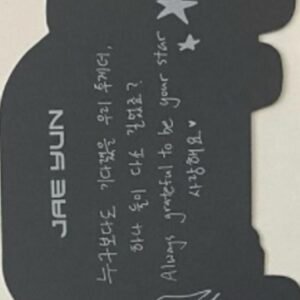 JAE YUN
누구보다도 기다렸을 우리 투게더,
하나 둘이 다 길었죠?
Always grateful to be your star
사랑해요♥